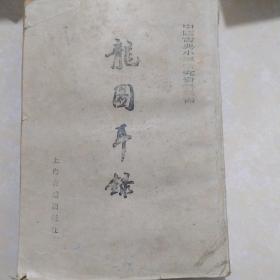 中国古典小说研究资料丛书
龍圖耳錄
上海古籍出版社